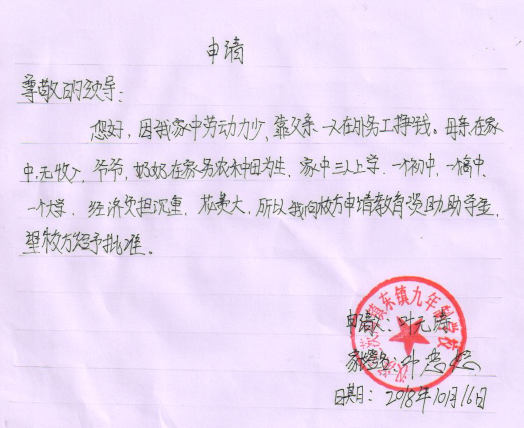 申请
尊敬的领导:
您好,因我家中劳动力少,靠父亲一人在外务工挣钱。母亲在家
中,无收入,爷爷,奶奶在家务农种田为生,家中三人上学,一个初中,一个高中,
一个大学,经济负担沉重,花费大,所以我向校方申请教育资助助学金,
望校方给予批准。
镇东镇九年制学校
申请人:叶元
家长签名:叶
日期:2018年10月16日